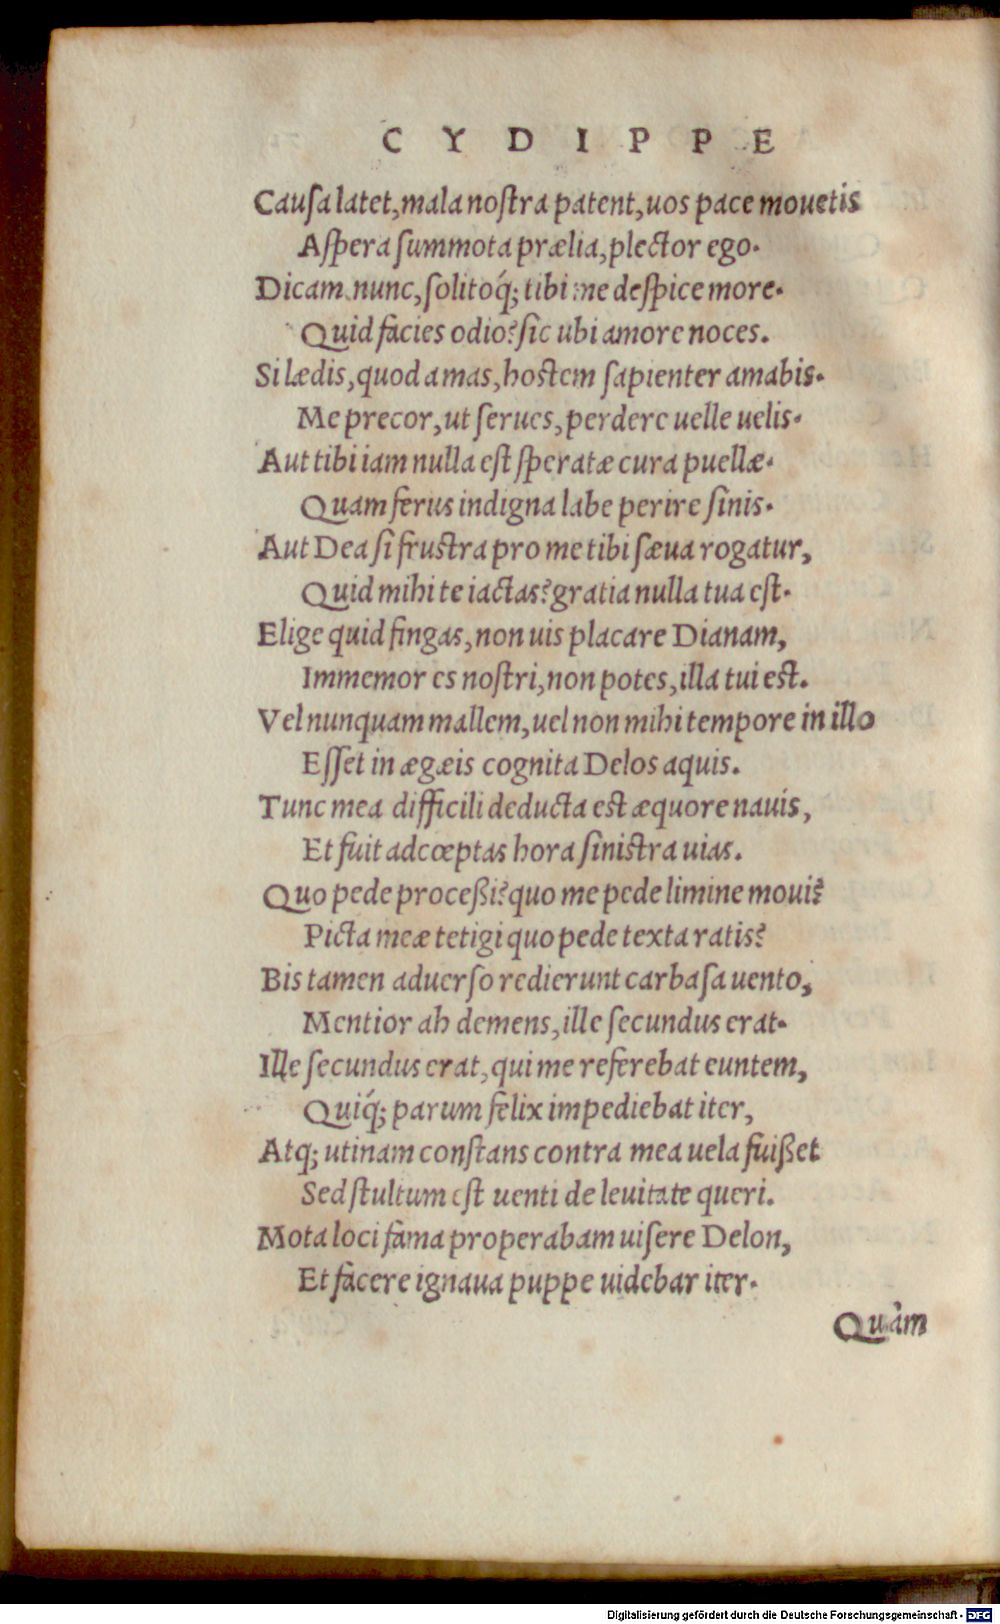 CYDIPPE
Causa latet, mala noſtra patent, uos pace mouetis
Aſpera ſummota prælia, plector ego.
Dicam nunc, ſolitoq́; tibi me deſpice more.
Quid facies odio? ſic ubi amore noces.
Si lædis, quod amas, hostem ſapienter amabis.
Me precor, ut ſerues, perdere uelle uelis.
Aut tibi iam nulla eſt ſperatæ cura puellæ.
Quam ferus indigna labe perire ſinis.
Aut Dea ſi fruſtra pro me tibi ſæua rogatur,
Quid mihi te iactas? gratia nulla tua eſt.
Elige quid fingas, non uis placare Dianam,
Immemor es noſtri, non potes, illa tui est.
Vel nunquam mallem, uel non mihi tempore in illo
Eſſet in ægæis cognita Delos aquis.
Tunc mea difficili deducta est æquore nauis,
Et fuit ad cœptas hora ſinistra uias.
Quo pede proceßi? quo me pede limine moui?
Picta meæ tetigi quo pede texta ratis?
Bis tamen aduerſo redierunt carbaſa uento,
Mentior ah demens, ille ſecundus erat.
Ille ſecundus erat, qui me referebat euntem,
Quiq́; parum felix impediebat iter,
Atq; utinam conſtans contra mea uela fuißet
Sed ſtultum eſt uenti de leuitate queri.
Mota loci fama properabam uiſere Delon,
Et facere ignaua puppe uidebar iter.
Quàm
Digitalisierung gefördert durch die Deutsche Forschungsgemeinschaft - DFG